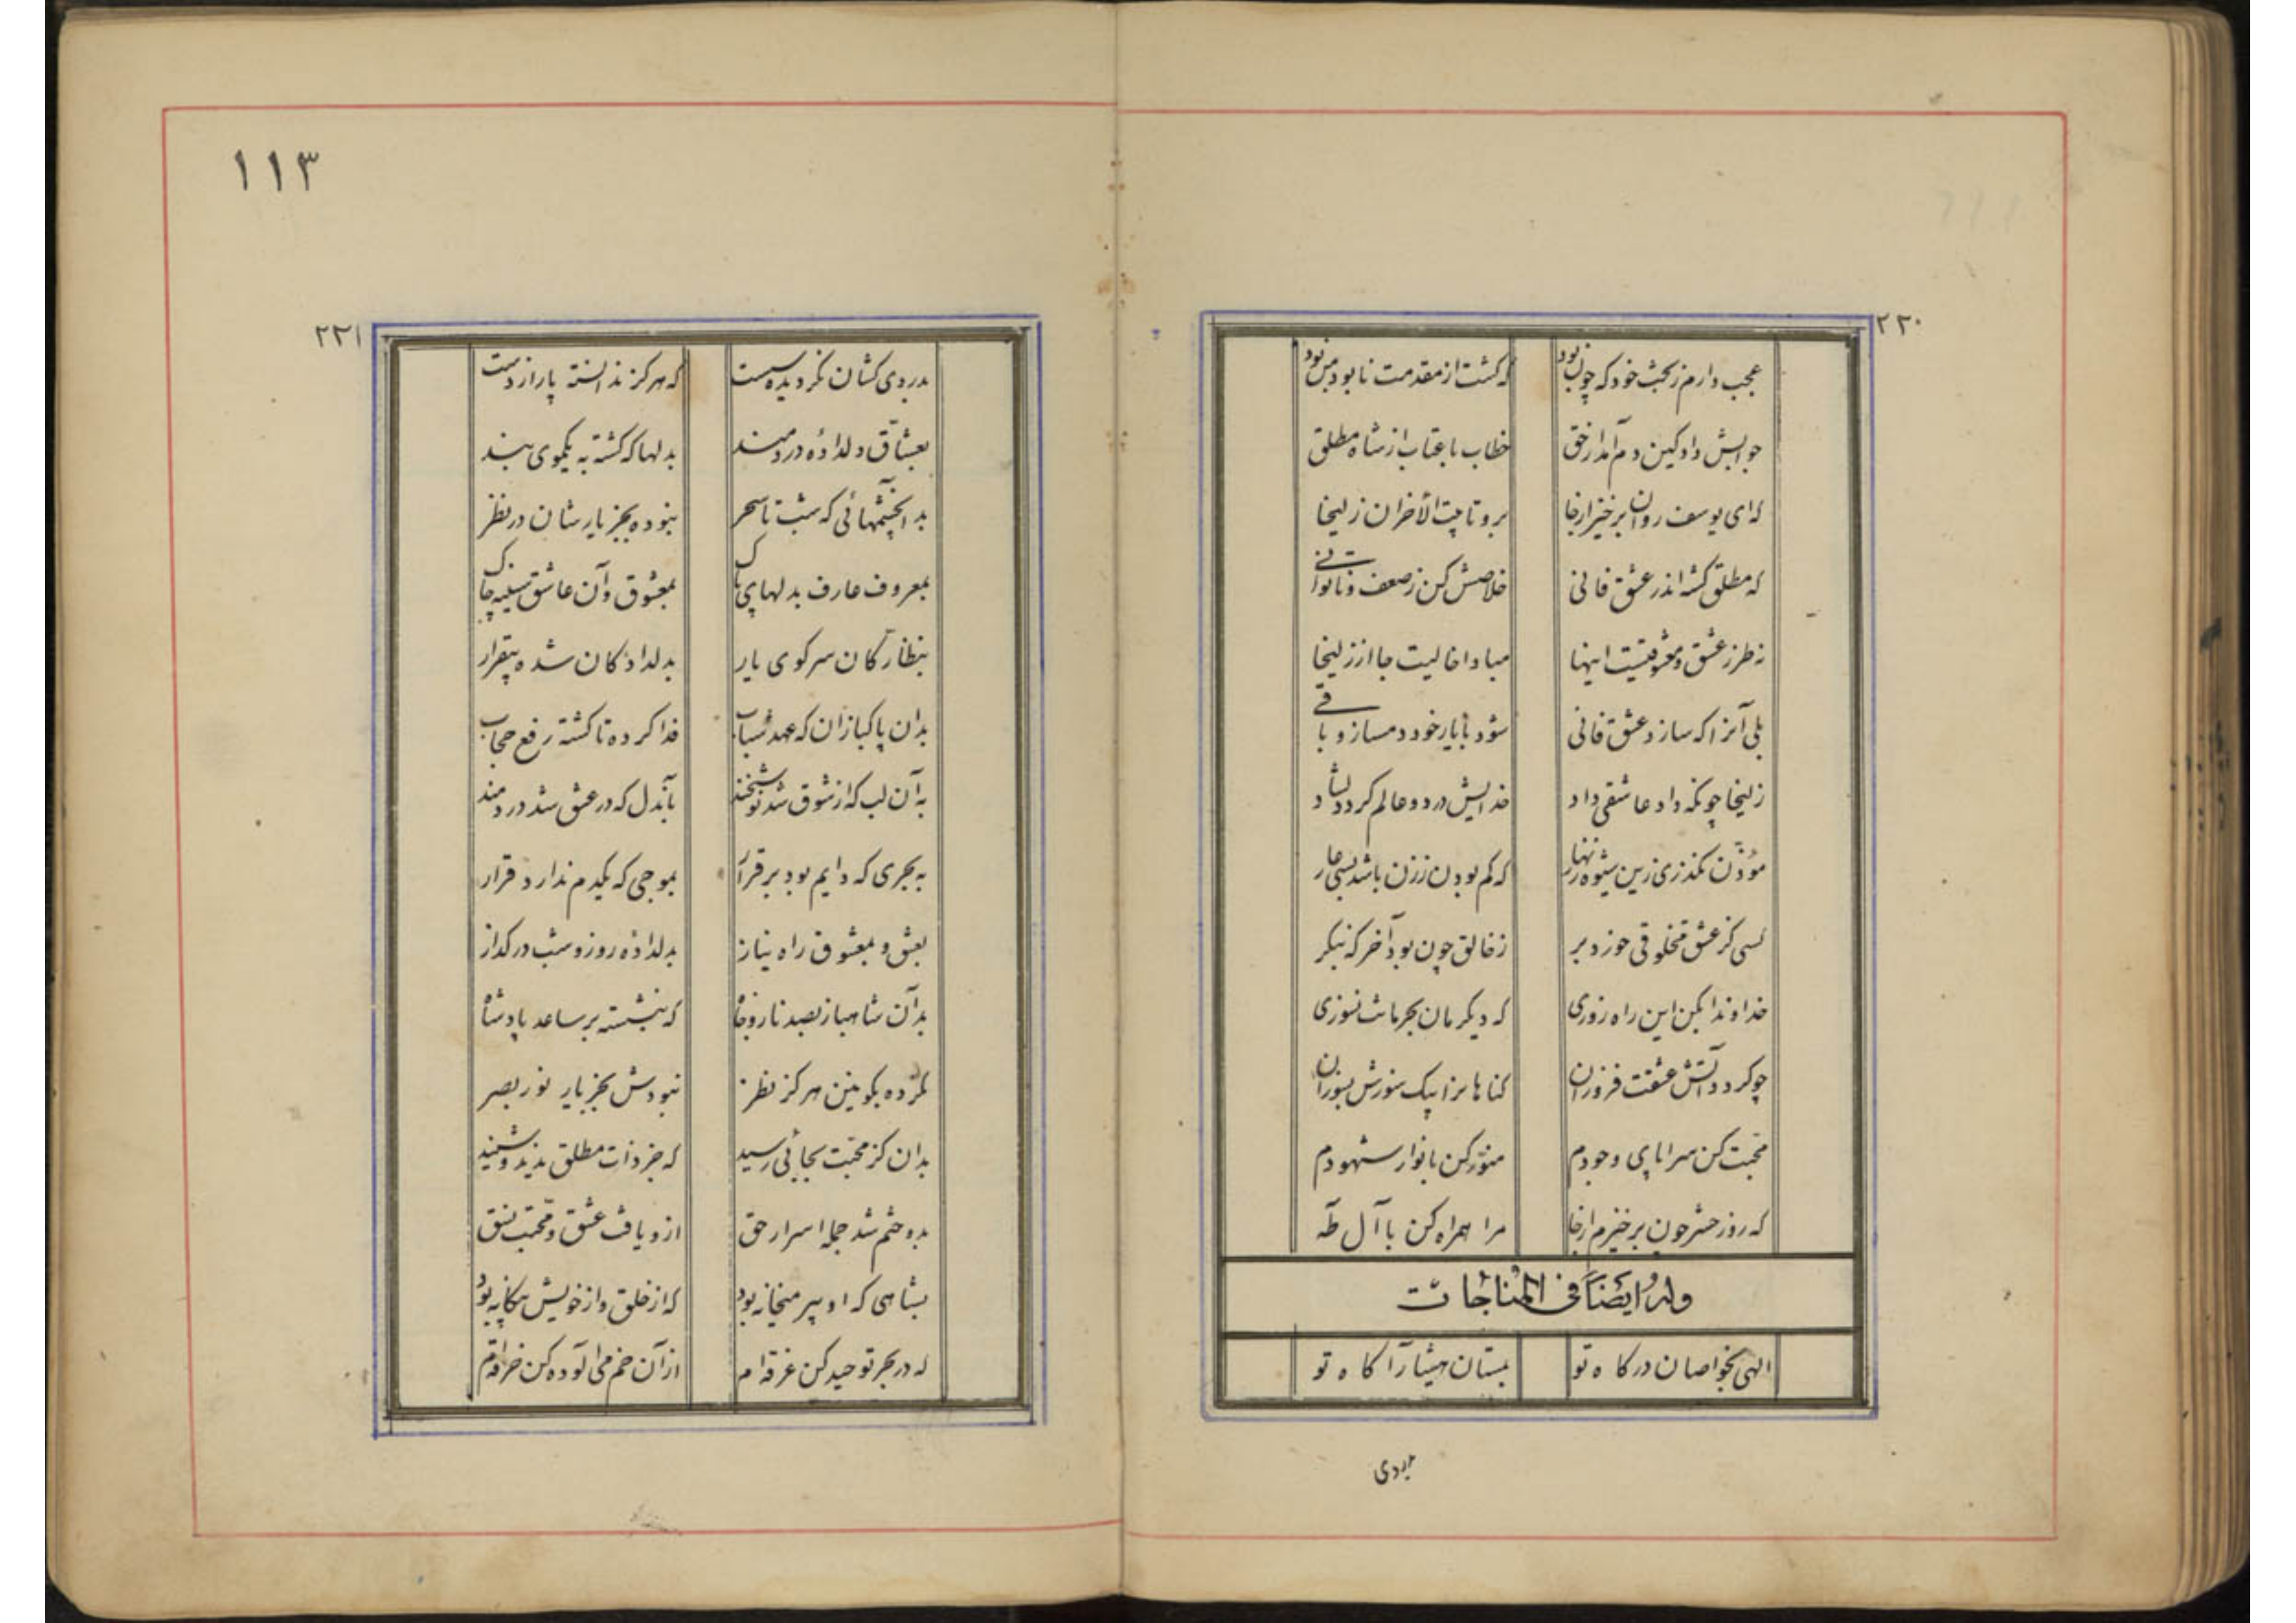 ۲۲۰
عجب دارم ز بخت خود که چون بود که گشت از مقدمت نابود من بود
جوابش داد کین دم آمد از حق خطاب با عتاب از شاه مطلق
که ای یوسف روان برخیز ازخا برو تا بیت الأخران زلیخا
که مطلق گشته اندر عشق فانی خلاصش کن ز ضعف و ناتوانی
نه طرز عشق و معشوقیست اینها مبادا خالیت جا از زلیخا
بلی آنرا که سازد عشق فانی شود با یار خود دمساز و باقی
زلیخا چونکه داد عاشقی داد خدایش در دو عالم کرد دلشاد
مؤذن نگذری زین شیوه زنهار که کم بودن ز زن باشد بسی عار
کسی کز عشق مخلوقی خورد بر ز خالق چون بود آخر که نیکر
خداوندا بکن این راه روزی که دیگر مان بحرمانت نسوزی
چو کردد آتش عشقت فروزان کناها نرا بیک سوزش بسوزان
محبت کن سراپای وجودم منور کن بانوار شهودم
که روز حشر چون برخیزم ازخا مرا همراه کن با آل طه
وله ایضا فی المناجات
الهی بخواصان درکاه تو بمستان هشیار آکاه تو
بدردی
۱۱۳
۲۲۱
بدردی کشان نکردیده مست که هرکز ندانسته پا را ز دست
بعشاق دلدادهٔ دردمند بدلها که کشته به یکموی بند
بدان چشمهائی که شب تا سحر نبوده بجز یار شان در نظر
بمعروف عارف بدلهای پاک بمعشوق و آن عاشق سینه چاک
بنظارکان سر کوی یار بدلدادکان شده بیقرار
بدان پاکبازان که عهد شباب فدا کرده تا کشته رفع حجاب
به آن لب که از شوق شد نوشخند بآندل که در عشق شد دردمند
به بحری که دایم بود برقرار بموجی که یکدم ندارد قرار
بعشق و بمعشوق راه نیاز بدلدادهٔ روز و شب در کداز
بدان شاهباز بصد نار وجاه که بنشسته بر ساعد پادشاه
نکرده بکونین هرکز نظر نبودش بجز یار نور بصر
بدان کز محبت بجائی رسید که جز ذات مطلق ندید و شنید
بدو ختم شد جمله اسرار حق ازو یافت عشق و محبت نسق
بشاهی که او پیر میخانه بود که از خلق و از خویش بیکانه بود
که در بحر توحید کن غرقه ام از آن خم می آلوده کن خرقه ام